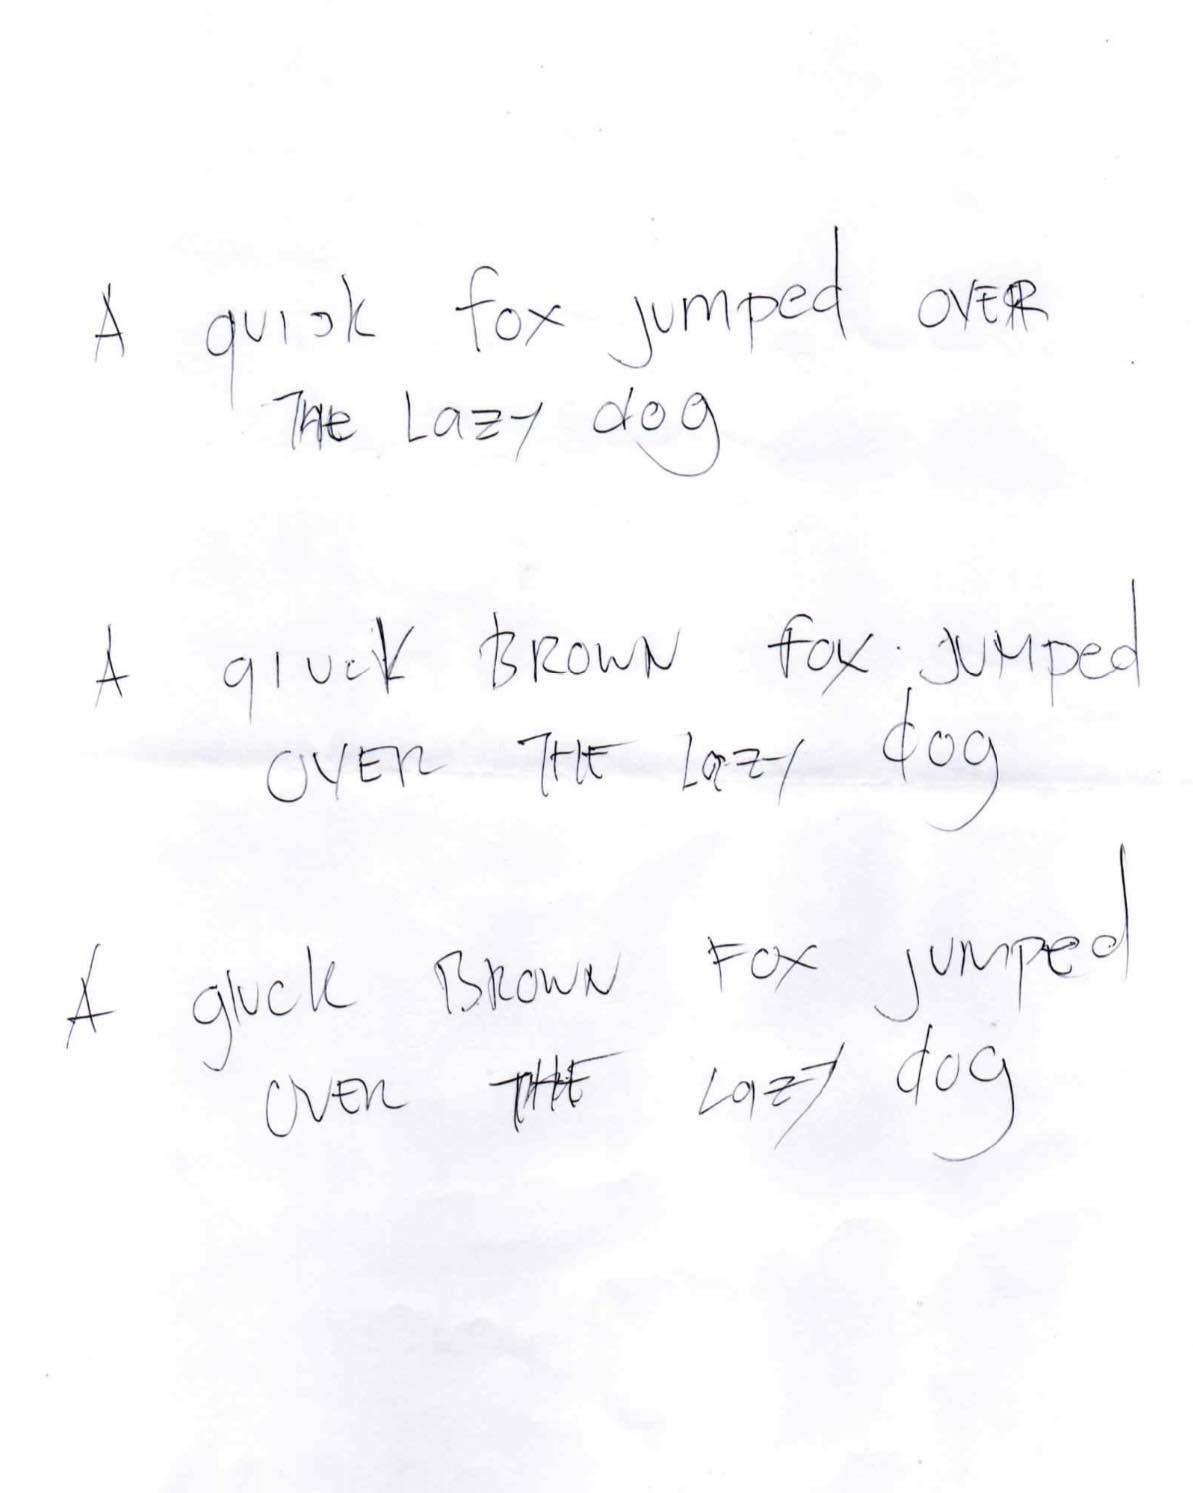 A quick fox jumped OVER
THE Lazy dog
A qiuck BROWN fox jUMped
OVER THE Lazy dog
A qiuck BROWN FOX jUMped
OVER THE Lazy dog